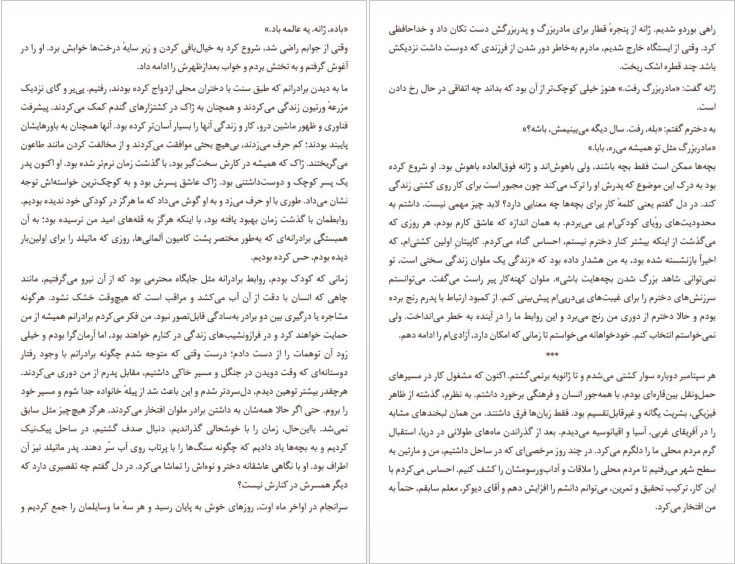 «باده، ژانه. یه عالمه باد.»
وقتی از جوابم راضی شد، شروع کرد به خیال‌بافی کردن و زیر سایهٔ درخت‌ها خوابش برد. او را در
آغوش گرفتم و به تختش بردم و خواب بعدازظهرش را ادامه داد.
ما به دیدن برادرانم که طبق سنت با دختران محلی ازدواج کرده بودند، رفتیم. پی‌یر و گای نزدیک
مزرعهٔ ورتیون زندگی می‌کردند و همچنان به ژاک در کشتزارهای گندم کمک می‌کردند. پیشرفت
فناوری و ظهور ماشین درو، کار و زندگی آنها را بسیار آسان‌تر کرده بود. آنها همچنان به باورهایشان
پایبند بودند؛ کم حرف می‌زدند، بی‌هیچ بحثی موافقت می‌کردند و از مخالفت کردن مانند طاعون
می‌گریختند. ژاک که همیشه در کارش سخت‌گیر بود، با گذشت زمان نرم‌تر شده بود. او اکنون پدر
یک پسر کوچک و دوست‌داشتنی بود. ژاک عاشق پسرش بود و به کوچک‌ترین خواسته‌اش توجه
نشان می‌داد. طوری با او حرف می‌زد و به او گوش می‌داد که ما هرگز در کودکی خود ندیده بودیم.
روابطمان با گذشت زمان بهبود یافته بود، با اینکه هرگز به قله‌های امید من نرسیده بود؛ به آن
همبستگی برادرانه‌ای که به‌طور مختصر پشت کامیون آلمانی‌ها، روزی که ماتیلد را برای اولین‌بار
دیده بودم، حس کرده بودیم.
زمانی که کودک بودم، روابط برادرانه مثل جایگاه محترمی بود که از آن نیرو می‌گرفتیم، مانند
چاهی که انسان با دقت از آن آب می‌کشد و مراقب است که هیچ‌وقت خشک نشود. هرگونه
مشاجره یا درگیری بین دو برادر به‌سادگی قابل‌تصور نبود. من فکر می‌کردم برادرانم همیشه از من
حمایت خواهند کرد و در فرازونشیب‌های زندگی در کنارم خواهند بود، اما آرمان‌گرا بودم و خیلی
زود آن توهمات را از دست دادم؛ درست وقتی که متوجه شدم چگونه برادرانم با وجود رفتار
دوستانه‌ای که وقت دویدن در جنگل و مسیر خاکی داشتیم، مقابل پدرم از من دوری می‌کردند.
هرچقدر بیشتر توهین دیدم، دل‌سردتر شدم و این باعث شد از پیلهٔ خانواده جدا شوم و مسیر خود
را بروم. حتی اگر حالا همه‌شان به داشتن برادر ملوان افتخار می‌کردند، هرگز هیچ‌چیز مثل سابق
نمی‌شد. بااین‌حال، زمان را با خوشحالی گذراندیم. دنبال صدف گشتیم، در ساحل پیک‌نیک
کردیم و به بچه‌ها یاد دادیم که چگونه سنگ‌ها را با پرتاب روی آب سُر دهند. پدر ماتیلد نیز آن
اطراف بود. او با نگاهی عاشقانه دختر و نوه‌اش را تماشا می‌کرد. در دل گفتم چه تقصیری دارد که
دیگر همسرش در کنارش نیست؟
سرانجام در اواخر ماه اوت، روزهای خوش به پایان رسید و هر سهٔ ما وسایلمان را جمع کردیم و
راهی بوردو شدیم. ژانه از پنجرهٔ قطار برای مادربزرگ و پدربزرگش دست تکان داد و خداحافظی
کرد. وقتی از ایستگاه خارج شدیم، مادرم به‌خاطر دور شدن از فرزندی که دوست داشت نزدیکش
باشد چند قطره اشک ریخت.
ژانه گفت: «مادربزرگ رفت.» هنوز خیلی کوچک‌تر از آن بود که بداند چه اتفاقی در حال رخ دادن
است.
به دخترم گفتم: «بله، رفت. سال دیگه می‌بینیمش، باشه؟»
«مادربزرگ مثل تو همیشه می‌ره، بابا.»
بچه‌ها ممکن است فقط بچه باشند، ولی باهوش‌اند و ژانه فوق‌العاده باهوش بود. او شروع کرده
بود به درک این موضوع که پدرش او را ترک می‌کند چون مجبور است برای کار روی کشتی زندگی
کند. در دل گفتم یعنی کلمهٔ کار برای بچه‌ها چه معنایی دارد؟ لابد چیز مهمی نیست. داشتم به
محدودیت‌های رؤیای کودکی‌ام پی می‌بردم. به همان اندازه که عاشق کارم بودم، هر روزی که
می‌گذشت از اینکه بیشتر کنار دخترم نیستم، احساس گناه می‌کردم. کاپیتانِ اولین کشتی‌ام، که
اخیراً بازنشسته شده بود، به من هشدار داده بود که «زندگی یک ملوان زندگی سختی است، تو
نمی‌توانی شاهد بزرگ شدن بچه‌هایت باشی». ملوان کهنه‌کار پیر راست می‌گفت. می‌توانستم
سرزنش‌های دخترم را برای غیبت‌های پی‌درپی‌ام پیش‌بینی کنم. از کمبود ارتباط با پدرم رنج برده
بودم و حالا دخترم از دوری من رنج می‌برد و این روابط ما را در آینده به خطر می‌انداخت. ولی
نمی‌خواستم انتخاب کنم. خودخواهانه می‌خواستم تا زمانی که امکان دارد، آزادی‌ام را ادامه دهم.
***
هر سپتامبر دوباره سوار کشتی می‌شدم و تا ژانویه برنمی‌گشتم. اکنون که مشغول کار در مسیرهای
حمل‌ونقل بین‌قاره‌ای بودم، با همه‌جور انسان و فرهنگی برخورد داشتم. به نظرم، گذشته از ظاهر
فیزیکی، بشریت یگانه و غیرقابل‌تقسیم بود. فقط زبان‌ها فرق داشتند. من همان لبخندهای مشابه
را در آفریقای غربی، آسیا و اقیانوسیه می‌دیدم. بعد از گذراندن ماه‌های طولانی در دریا، استقبال
گرم مردم محلی ما را دلگرم می‌کرد. در چند روز مرخصی‌ای که در ساحل داشتیم، من و مارتین به
سطح شهر می‌رفتیم تا مردم محلی را ملاقات و آداب‌ورسومشان را کشف کنیم. احساس می‌کردم با
این کار، ترکیب تحقیق و تمرین، می‌توانم دانشم را افزایش دهم و آقای دیوکر، معلم سابقم، حتماً به
من افتخار می‌کرد.